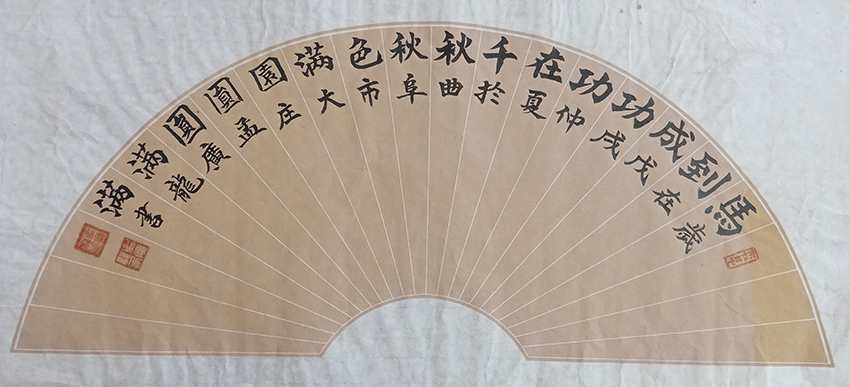 馬到成功功在千秋秋色滿園圓圓滿滿
歲在戊戌仲夏於曲阜市大庄孟廣龍書